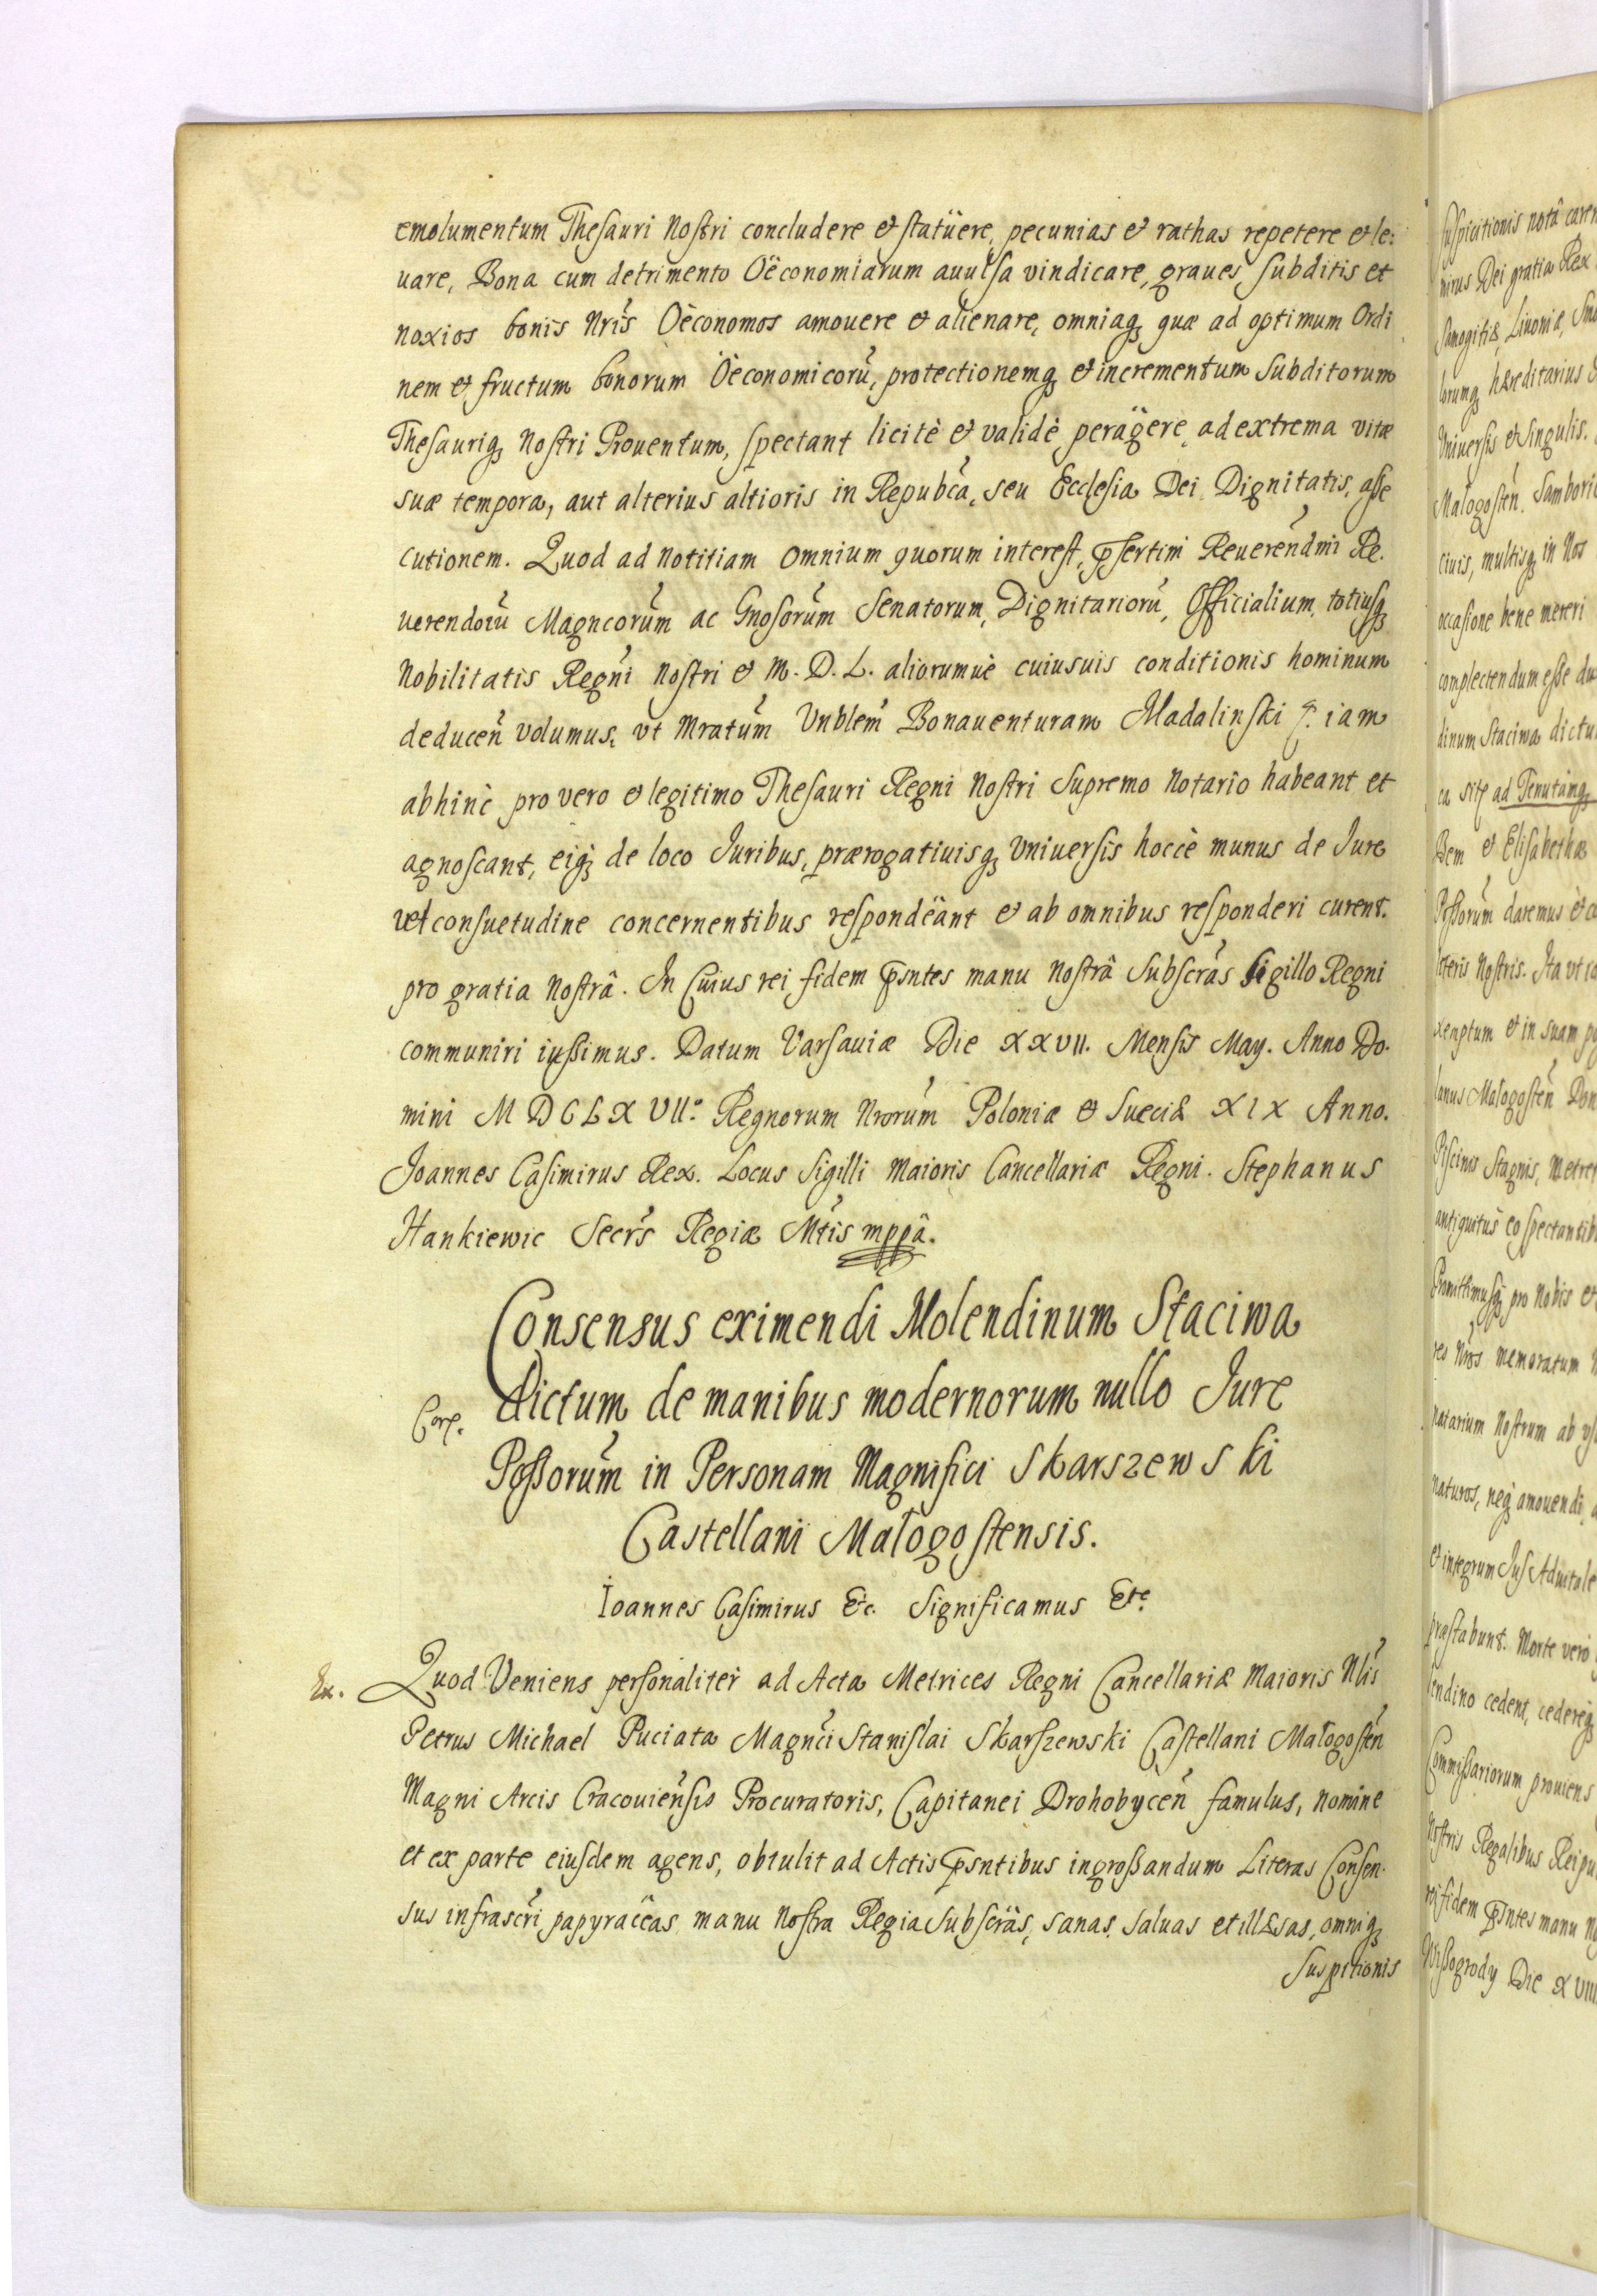 emolumentum Thesauri Nostri concludere et statuere, pecunias et rathas repetere et le:
uare, Bona cum detrimento Oëconomiarum auulsa vindicare, graues Subditis et
noxios bonis Nris Oèconomos amouere et alienare, omniaq; quæ ad optimum Ordi
nem et fructum bonorum Oèconomicorũ, protectionemq; et incrementum Subditorum
Thesauriq; Nostri Prouentum, spectant licitè et validè peragere, ad extrema vitæ
suæ tempora, aut alterius altioris in Repubca, seu Ecclesia Dei Dignitatis, asse
cutionem. Quod ad Notitiam omnium quorum interest, psertim Reuerendmi Re.
uerendorũ Magncorum ac Gnosorum Senatorum, Dignitariorũ, Officialium, totiusq;
Nobilitatis Regni Nostri et M. D. L. aliorumuè cuiusuis conditionis hominum
deducen volumus, vt Mratum Vnblem Bonauenturam Madalinski iam
abhinc pro vero et legitimo Thesauri Regni Nostri Supremo Notario habeant et
agnoscant, eiq; de loco Iuribus, prærogatiuisq; Vniuersis hoccè munus de Iure
vel consuetudine concernentibus respondëant et ab omnibus responderi curent.
pro gratia Nostrâ. In Cuius rei fidem psntes manu Nostrâ Subscras Sigillo Regni
communiri iussimus. Datum Varsauiæ Die XXVII. Mensis May. Anno Do.
mini MDCLXVII.º Regnorum Nrorum Poloniæ et Sueciæ XIX Anno.
Joannes Casimirus Rex. Locus Sigilli Maioris Cancellariæ Regni. Stephanus
Hankiewic Secrs Regiæ Mtis mppâ.
Consensus eximendi Molendinum Staciwa
dictum de manibus modernorum nullo Iure
Corr.
Possorum in Personam Magnifici Skarszewski
Castellani Małogostensis.
Ioannes Casimirus &c. Significamus Etc
Ex.
Quod Veniens personaliter ad Acta Metrices Regni Cancellariæ Maioris Nlis
Petrus Michael Puciata Magnci Stanislai Skarszewski Castellani Małogosten
Magni Arcis Cracouiensis Procuratoris, Capitanei Drohobycen famulus, nomine
et ex parte eiusdem agens, obtulit ad Actis psntibus ingrossandum Literas Consen.
sus infrascri papyracëas manu Nostra Regia Subscräs, sanas, saluas et illæsas, omniq;
Suspitionis
suspicionis notâ caren
mirus Dei gratia Rex
Samogitiæ, Liuoniæ, Smo
lorumq; hæreditarius
Vniuersis et Singulis.
Małogosten. Sambori
ciuis, multisq; in Nos
occasione bene mereri
complectendum esse du
dinum Staciwa dictu
ad Tenutamq;
et Elisabetha
Possorum daremus
literis Nostris. Ita vt
xemptum et in suam
lanus Małogosten Dom
Piscinis Stagnis, Metre
antiquitùs eo spectantib
Promittimusq; pro Nobis et
res Nros memoratum
natarium Nostrum ab
naturos, neq; amouendi
et integrum Jus Aduitale
præstabunt. Morte verò
lendino cedent, cedereq;
Commissariorum prouiens
Nostris Regalibus Reipu
rei fidem psntes manu No
Wissogrody Die XVIII